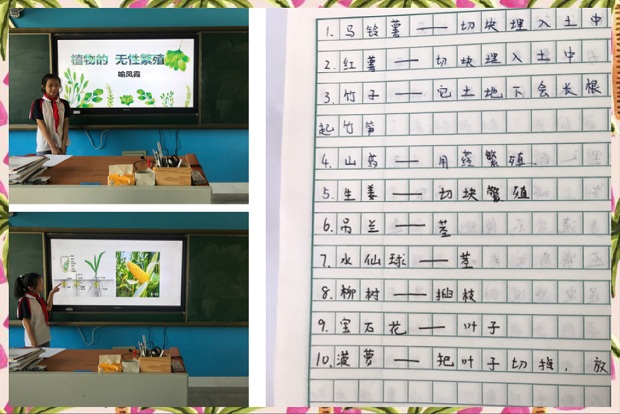 植物的 无性繁殖
喻凤霞
1. 马铃薯——切块埋入土中
2. 红薯——切块埋入土中
3. 竹子——它土地下会长根
起竹笋
4. 山药——用茎繁殖
5. 生姜——切块繁殖
6. 吊兰——茎
7. 水仙球——茎
8. 柳树——抽枝
9. 宝石花——叶子
10. 菠萝——把叶子切掉，放